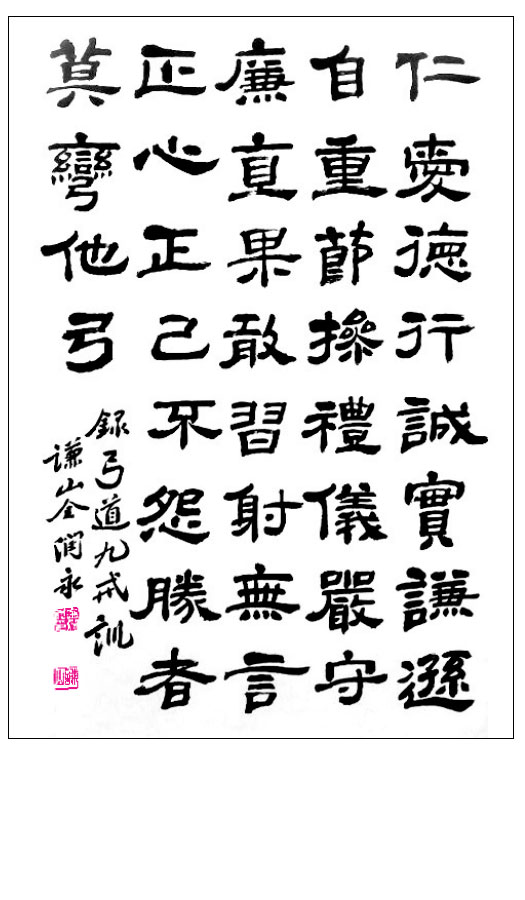 仁愛德行誠實謙遜
自重節操禮儀嚴守
廉直果敢習射無言
正心正己不怨勝者
莫彎他弓
録弓道九戒訓
謙山全潤永